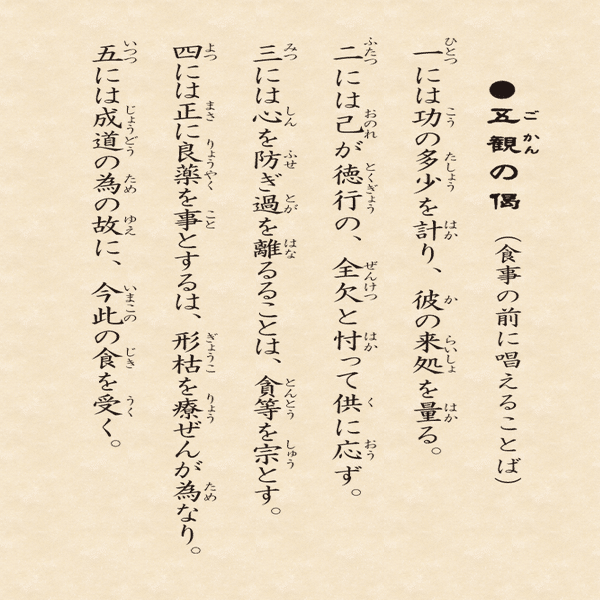 ●五観の偈（食事の前に唱えることば）
一には功の多少を計り、彼の来処を量る。
二には己が徳行の、全欠と忖って供に応ず。
三には心を防ぎ過を離るることは、貪等を宗とす。
四には正に良薬を事とするは、形枯を療ぜんが為なり。
五には成道の為の故に、今此の食を受く。